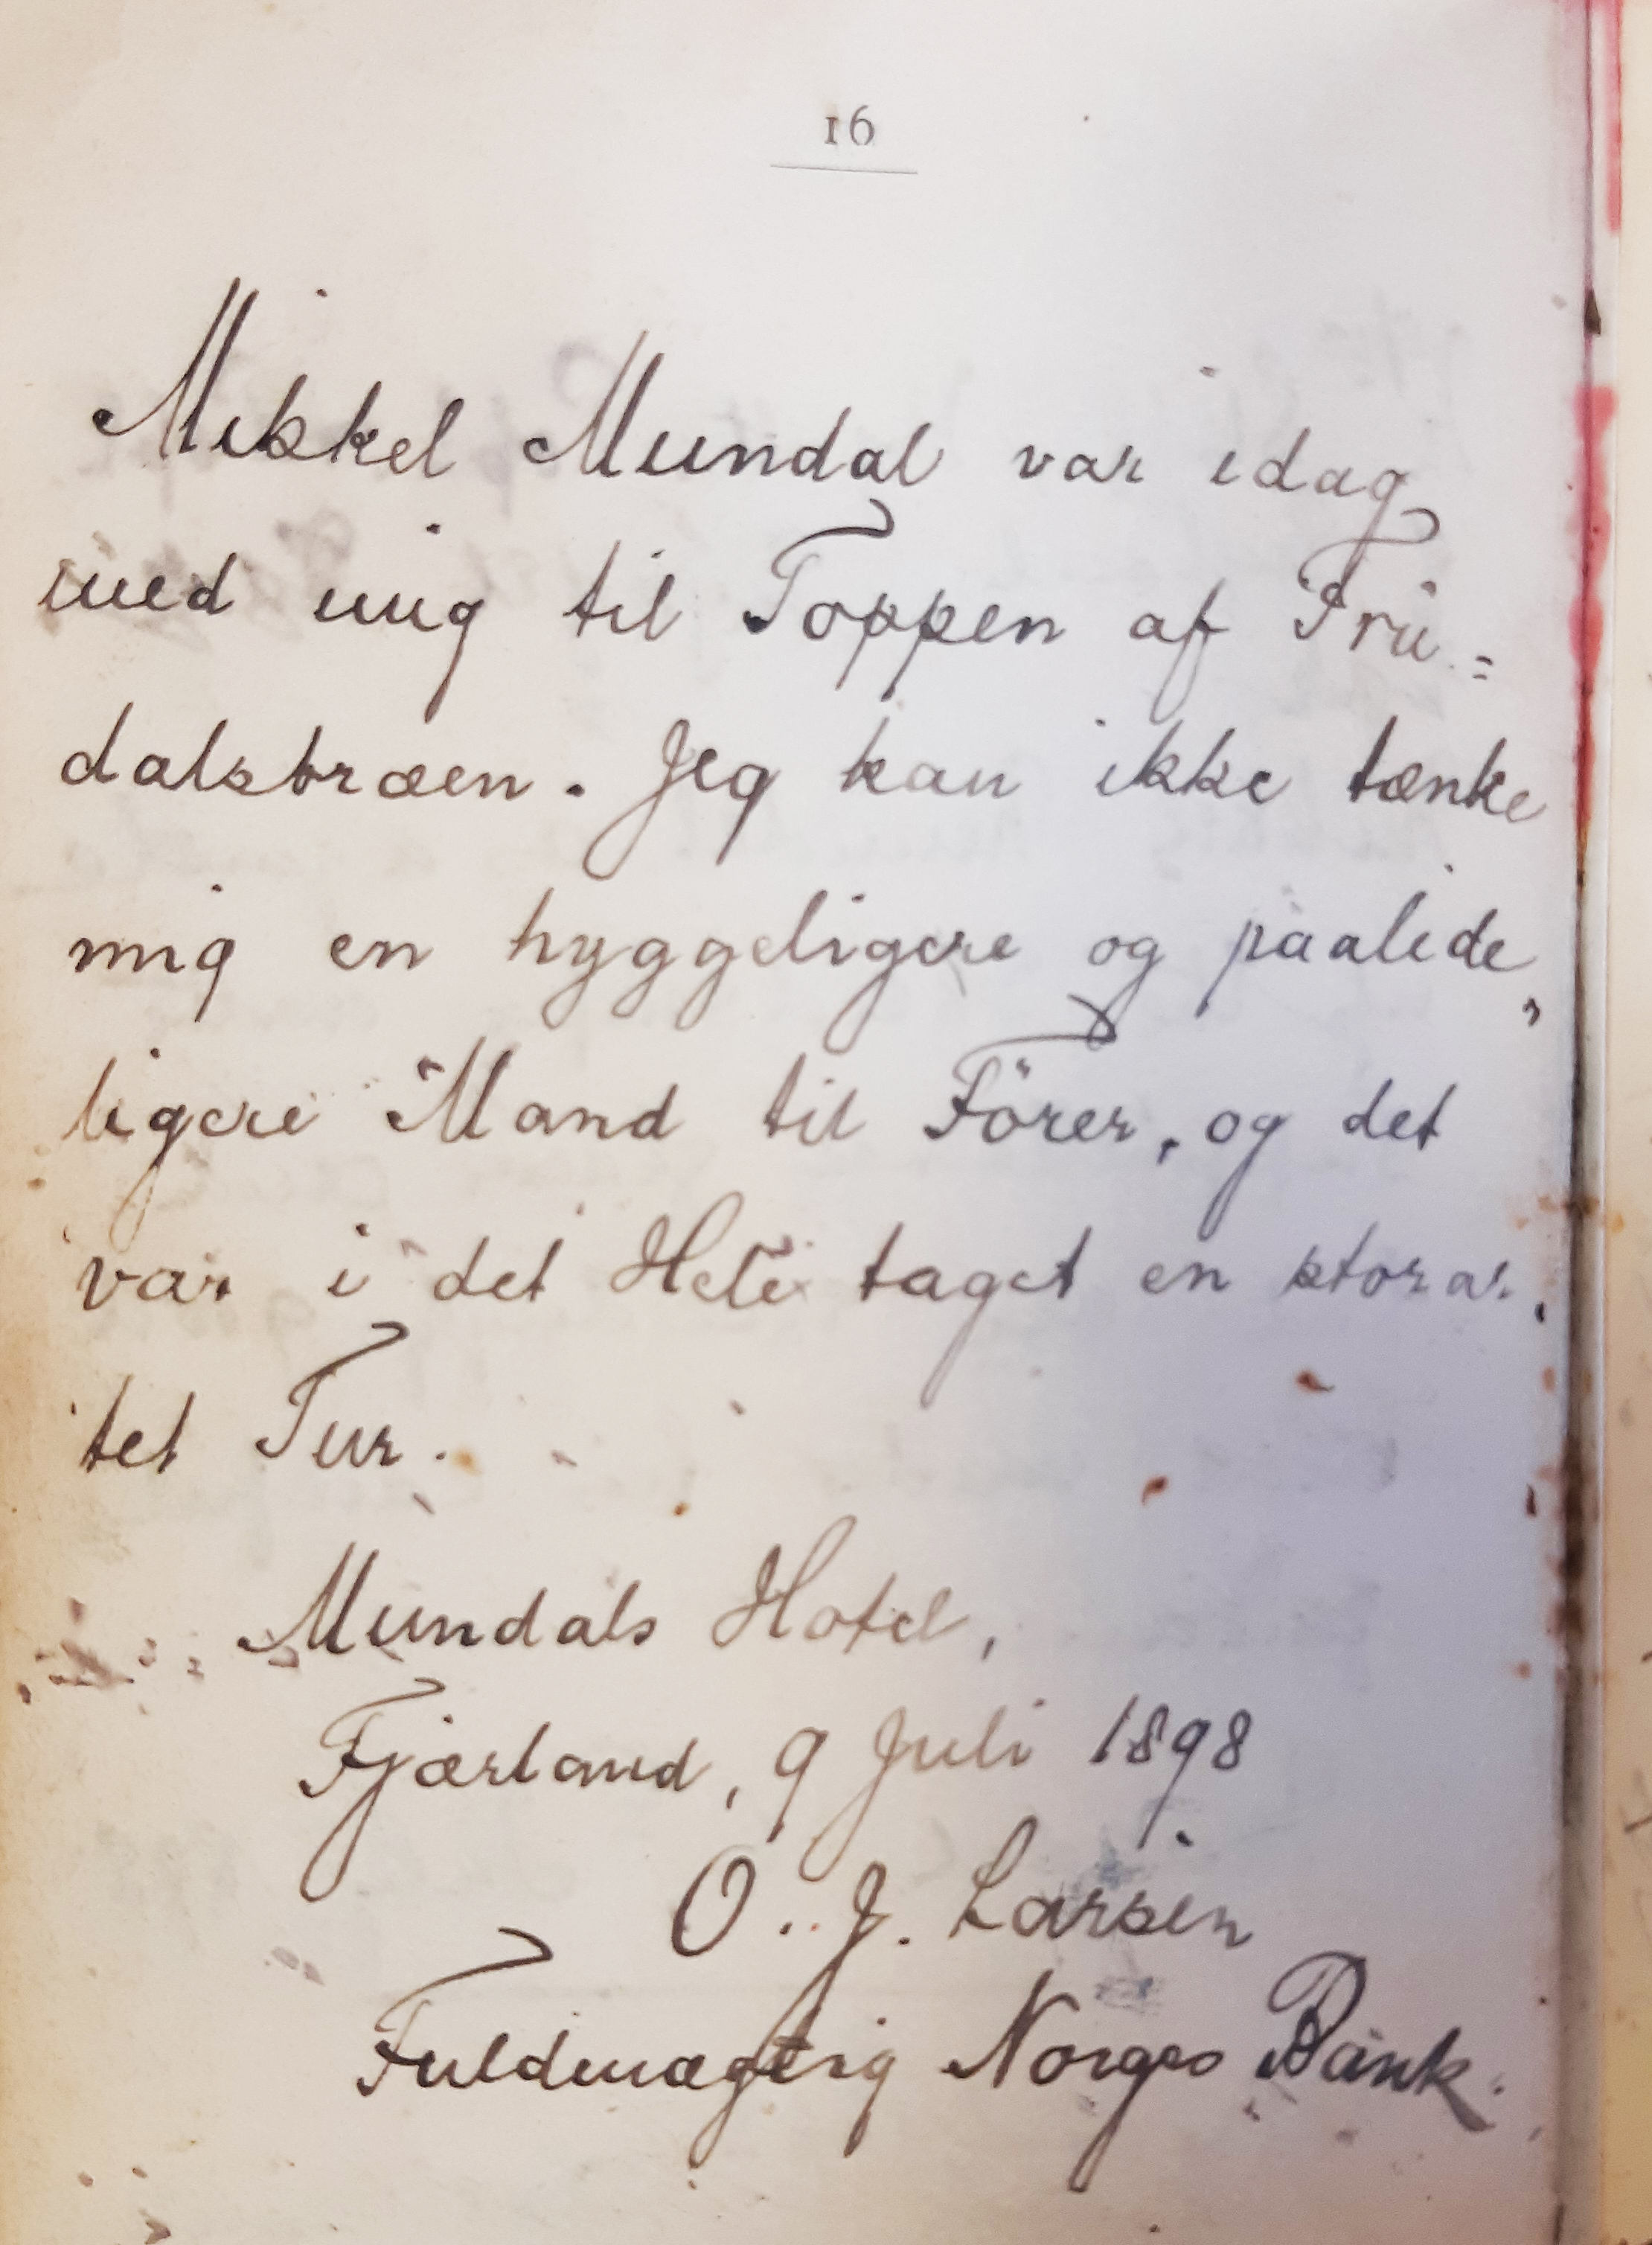 16
Mikkel Mundal var idag
med mig til Toppen af Fru=
dalsbræen. Jeg kan ikke tænke
mig en hyggeligere og paalide„
ligere Mand til Förer, og det
var i det Hele taget en storar„
tet Tur.
Mundals Hotel,
Fjærland, 9 Juli 1898
O. J. Larsen
Fuldmægtig Norges Bank.